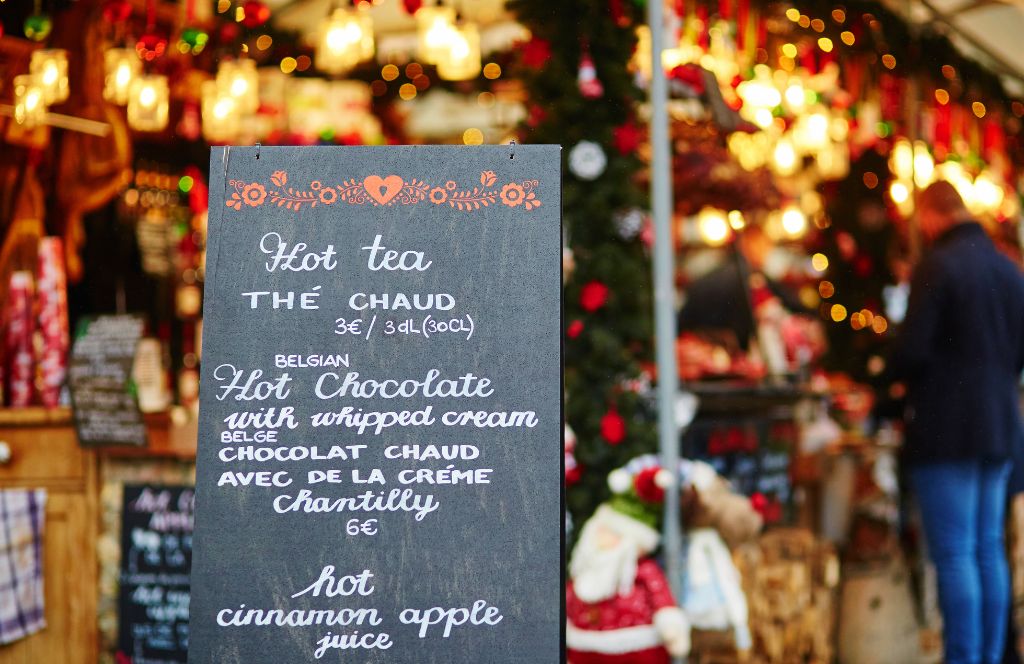 Hot tea
THÉ CHAUD
3€/3dL(30CL)
BELGIAN
Hot Chocolate
with whipped cream
BELGE
CHOCOLAT CHAUD
AVEC DE LA CRÉME
Chantilly
6€
hot
cinnamon apple
juice